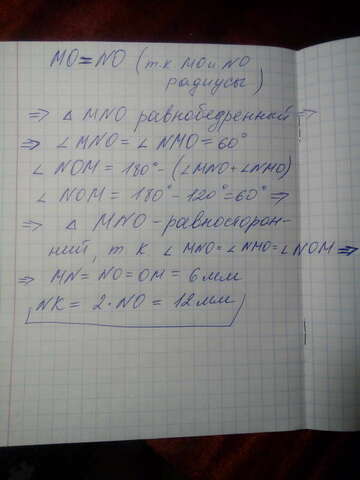 MO = NO (т.к MO и NO
радиусы)
⇒ △ MNO равнобедренный ⇒
⇒ ∠MNO = ∠NMO = 60°
∠NOM = 180° - (∠MNO + ∠NMO)
∠NOM = 180° - 120° = 60° ⇒
⇒ △ MNO - равносторон-
ний, т к ∠MNO = ∠NMO = ∠NOM ⇒
⇒ MN = NO = OM = 6 мм
NK = 2 · NO = 12 мм